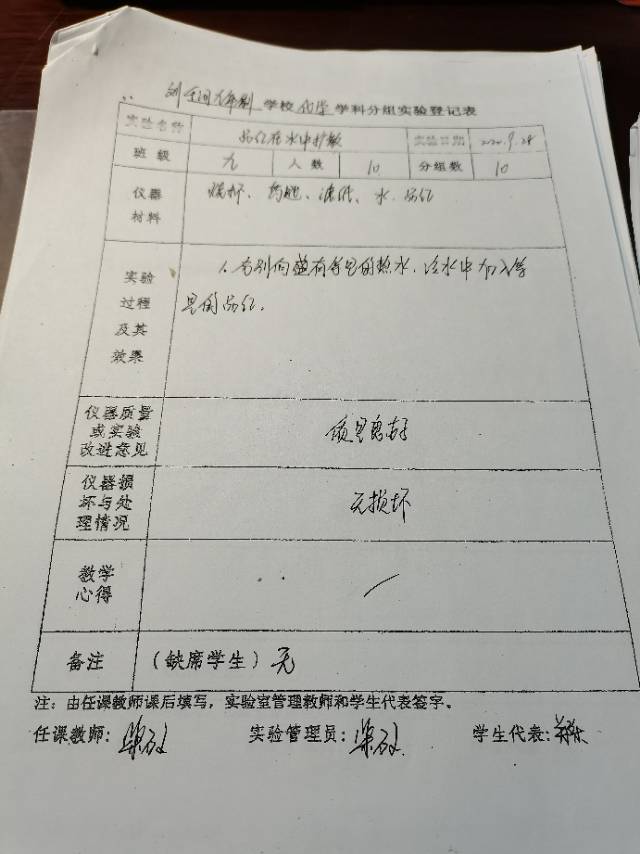 学校 化学 学科分组实验登记表
实验名称 品红在水中扩散 实验日期 2020.9.28
班级 九 人数 10 分组数 10
仪器材料 烧杯、药匙、水、品红
实验过程及其效果 1.分别向盛有等量的热水、冷水中加入等
量的品红。
仪器质量或实验改进意见 质量良好
仪器损坏与处理情况 无损坏
教学心得 /
备注 (缺席学生)无
注：由任课教师课后填写，实验室管理教师和学生代表签字。
任课教师: 实验管理员: 学生代表: